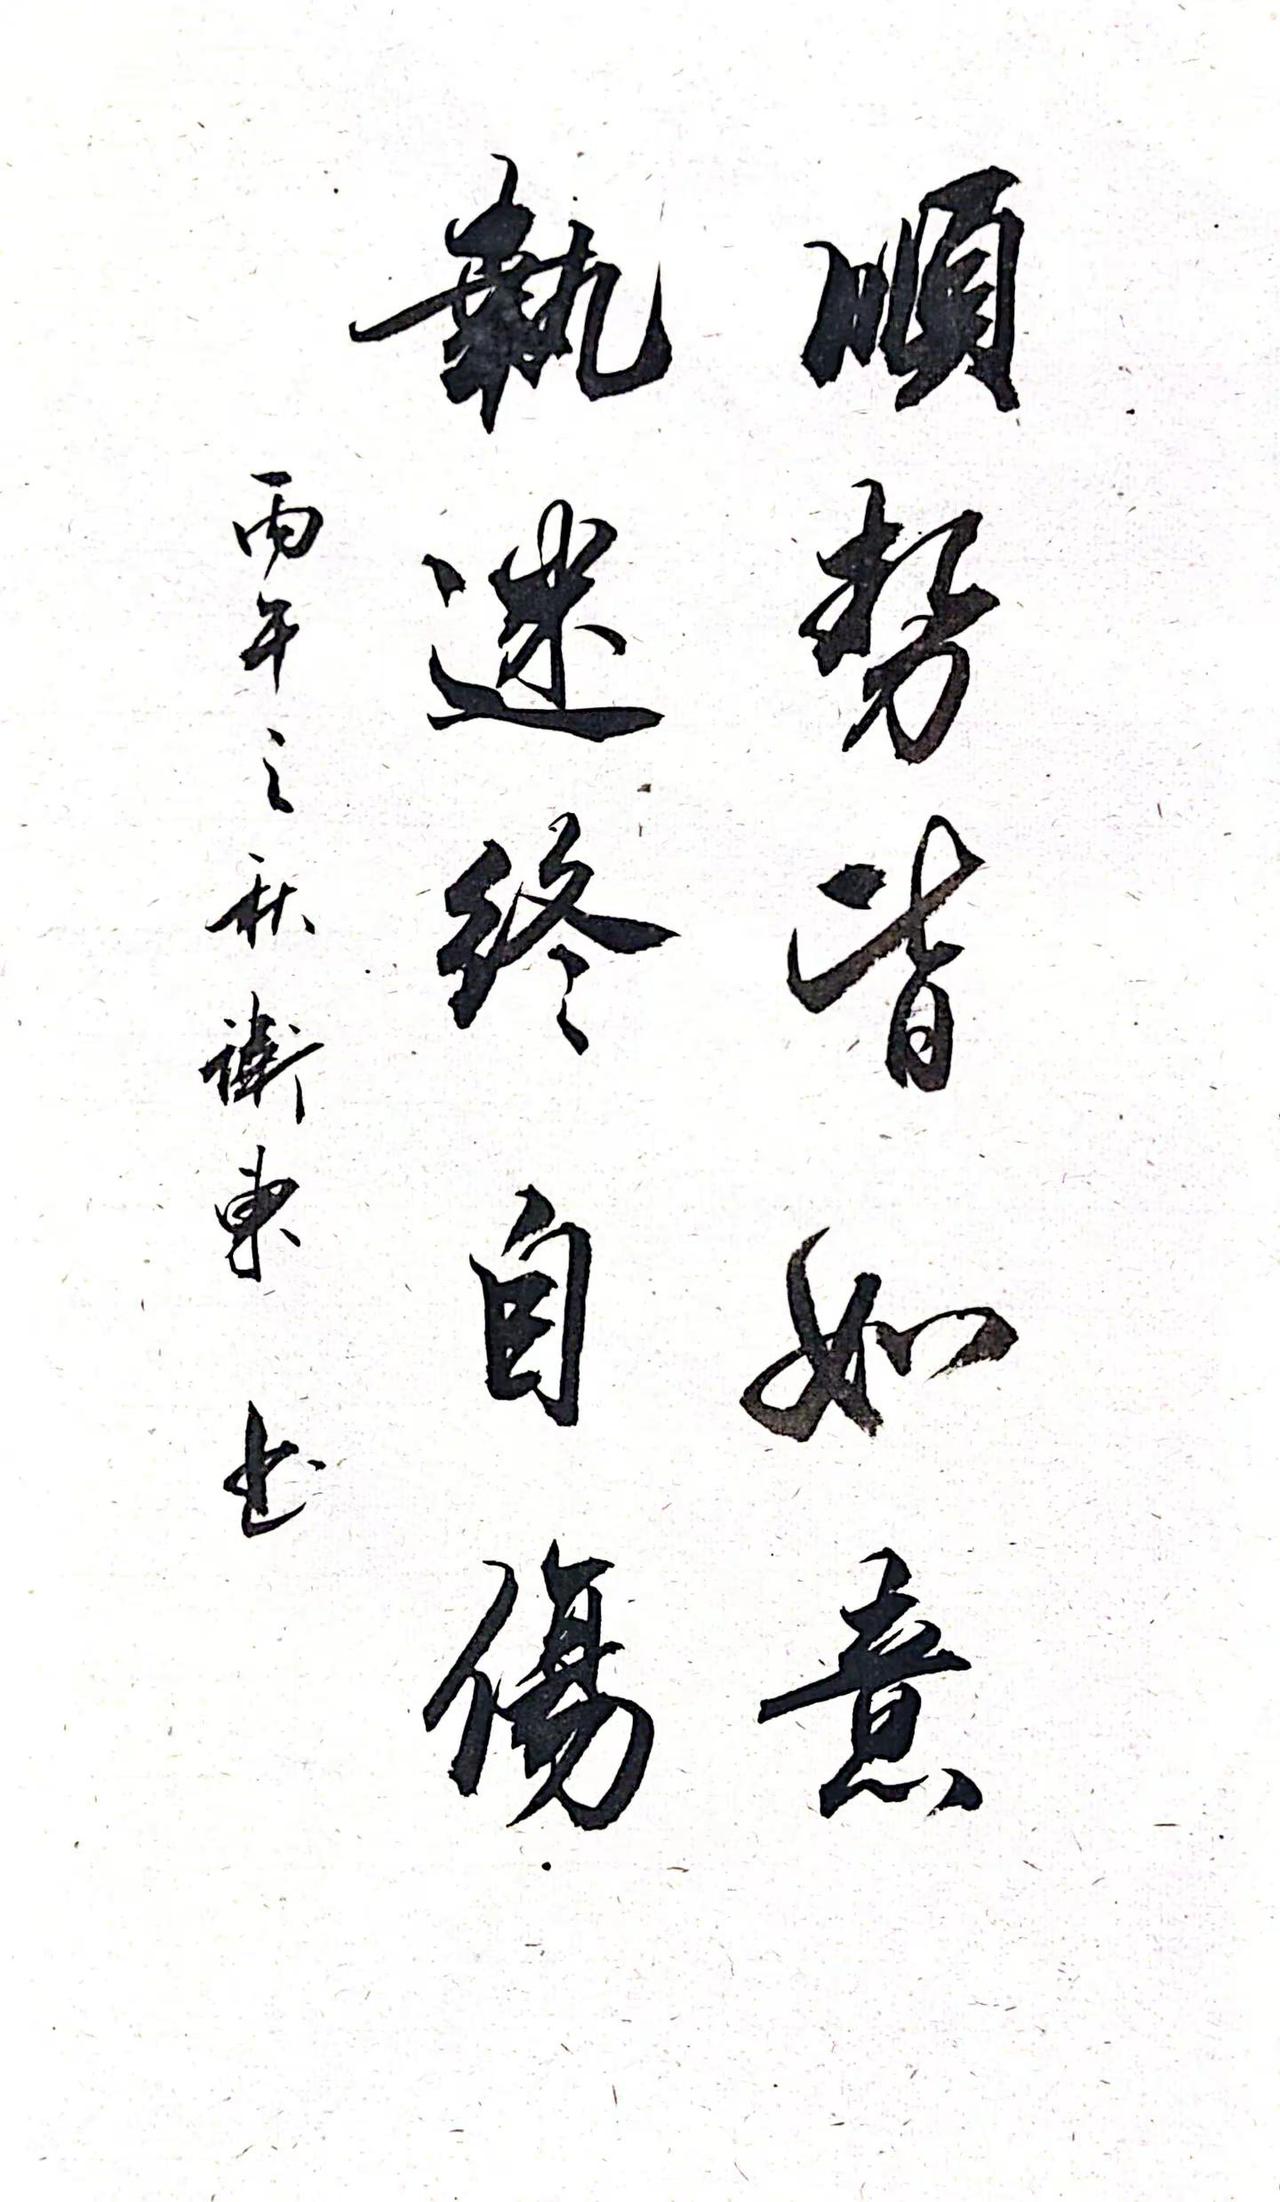 順勢皆如意
執迷終自傷
丙午之秋衛東书